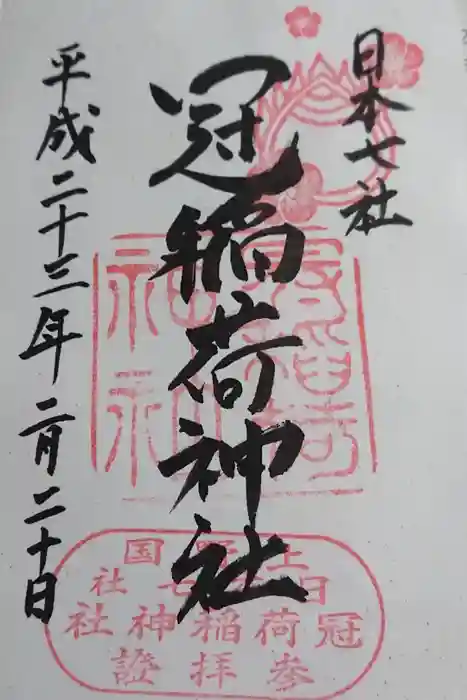 日本七社
冠稲荷神社
平成二十三年二月二十日
冠稲荷神社
上野国
日本七社
冠荷稲神社
参拝證